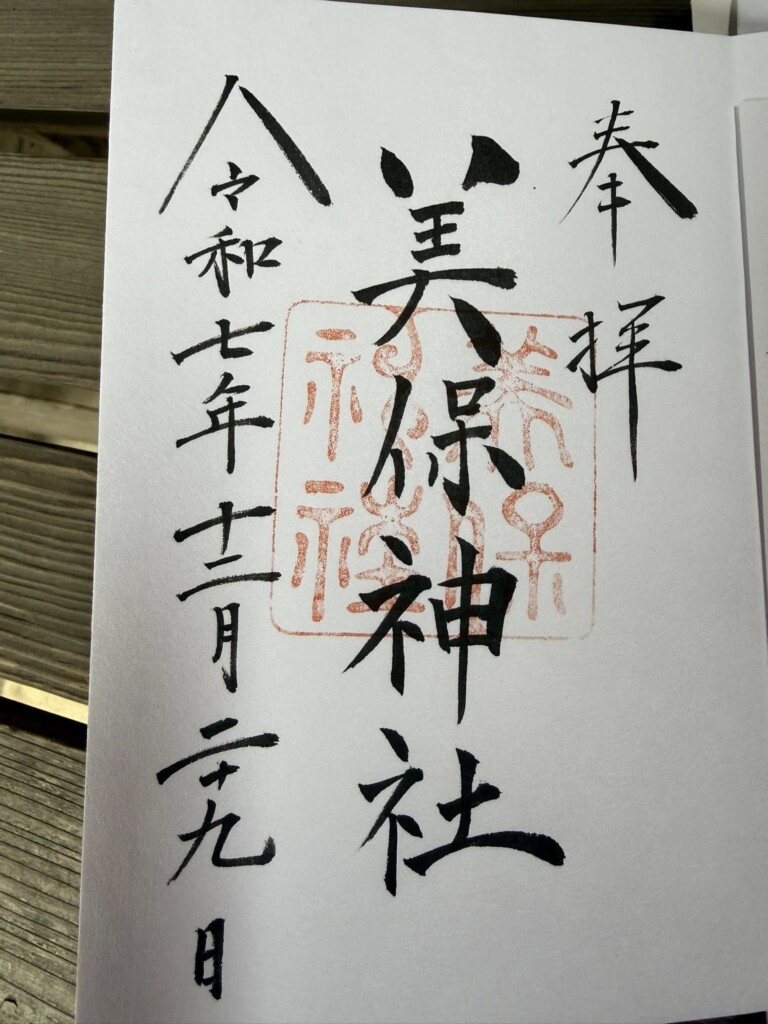 奉拝
美保神社
令和七年十二月二十九日
美保神社